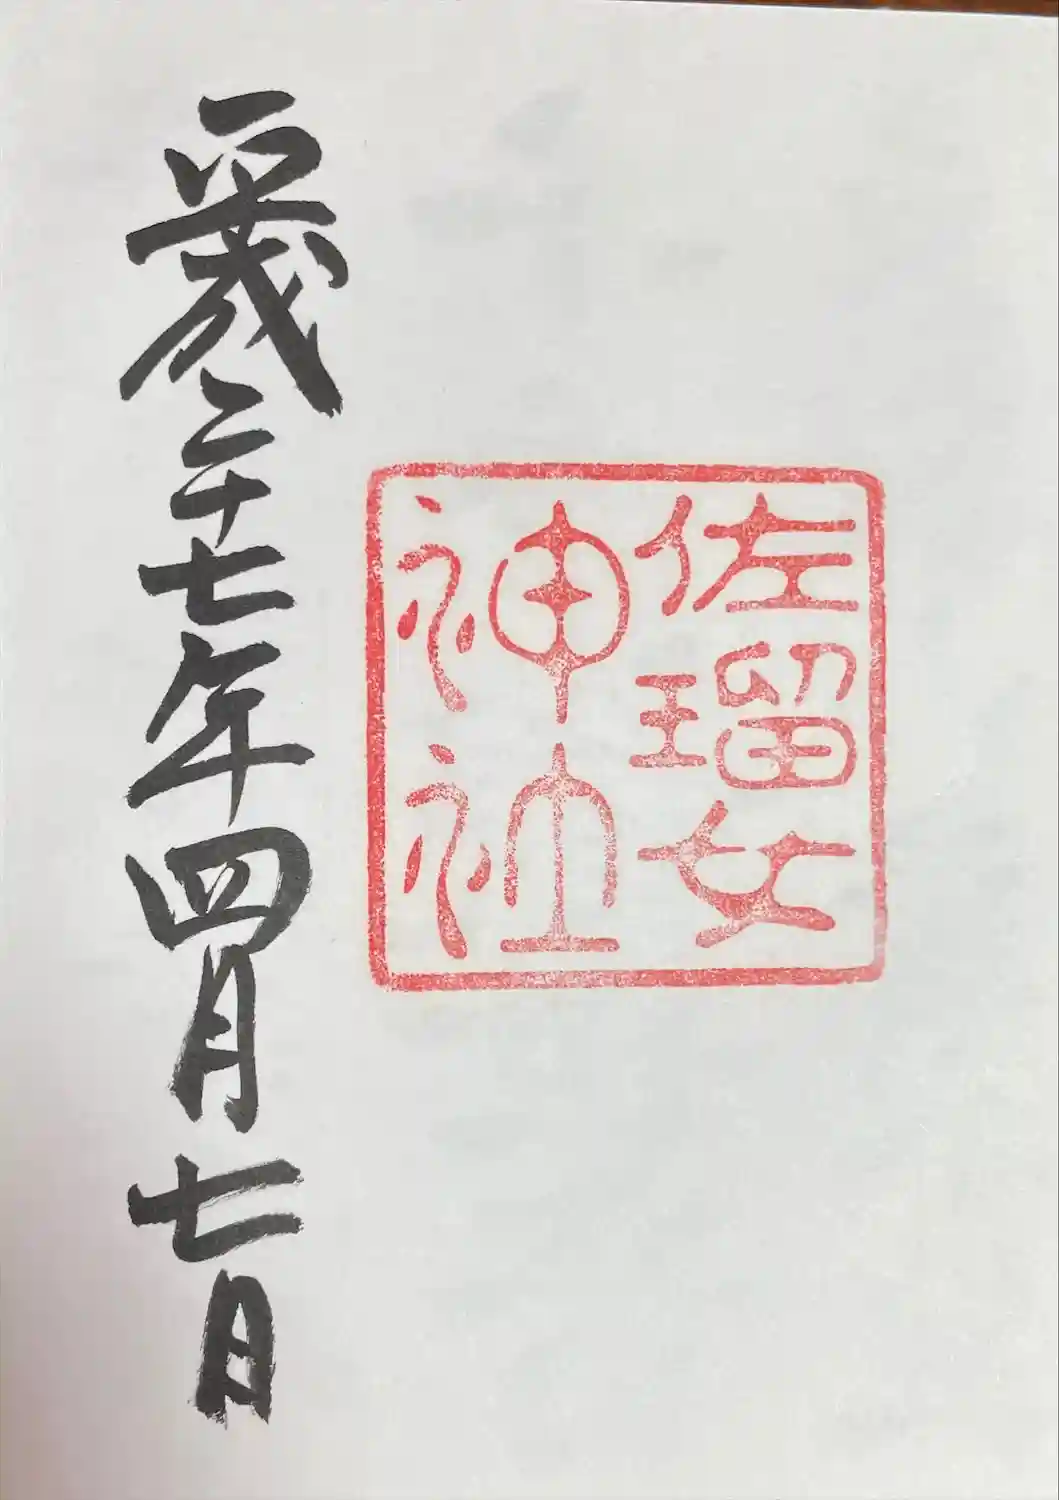 佐瑠女
神社
平成二十七年四月七日